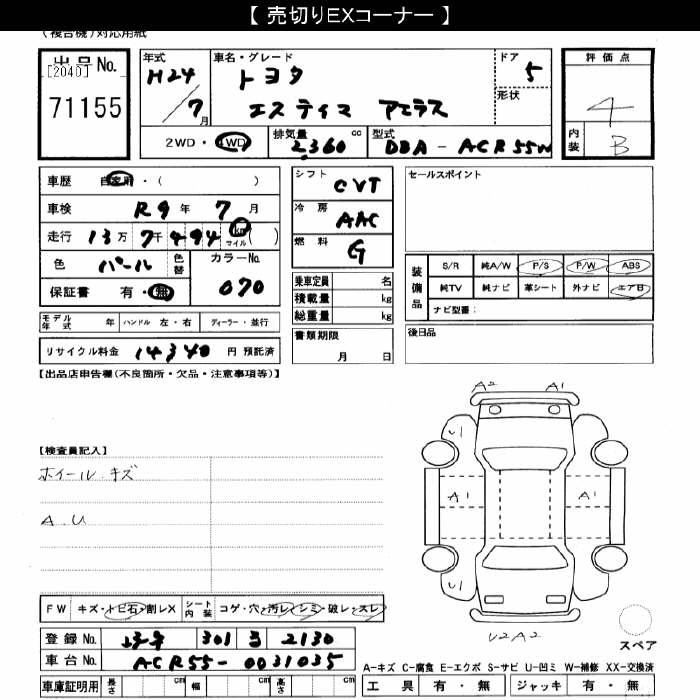 【 売切りEXコーナー 】
(複合機)対応用紙
出品No.
[2040]
71155
年式
H24/7月
車名・グレード
トヨタ
エスティマ アエラス
ドア
5
形状
2WD・4WD
排気量 cc
2,360
型式
DBA - ACR55W
評価点
4
内装
B
車歴 自家用・( )
車検 R9年 7月
走行 13万 7千 494 km マイル ( )
色 パール 色替 カラーNo. 070
保証書 有・無
シフト CVT
冷房 AAC
燃料 G
乗車定員 名
積載量 kg
総重量 kg
書類期限
月 日
セールスポイント
装備品
S/R 純A/W P/S P/W ABS
純TV 純ナビ 革シート 外ナビ エアB
ナビ型番:
後日品
モデル年式 年 ハンドル 左・右 ディーラー・並行
リサイクル料金 14340 円 預託済
【出品店申告欄(不良箇所・欠品・注意事項等)】
【検査員記入】
ホイール キズ
A.U
A2 A1
U1
A1 A1
U1
U2A2
スペア
FW キズ・トビ石・割レX シート内装 コゲ・穴・汚レ・シミ・破レ・スレ
登録No. 301 2130
車台No. ACR55-0031035
車庫証明用 長さ cm 幅 cm 高さ cm
A-キズ C-腐食 E-エクボ S-サビ U-凹ミ W-補修 XX-交換済
工具 有・無 ジャッキ 有・無